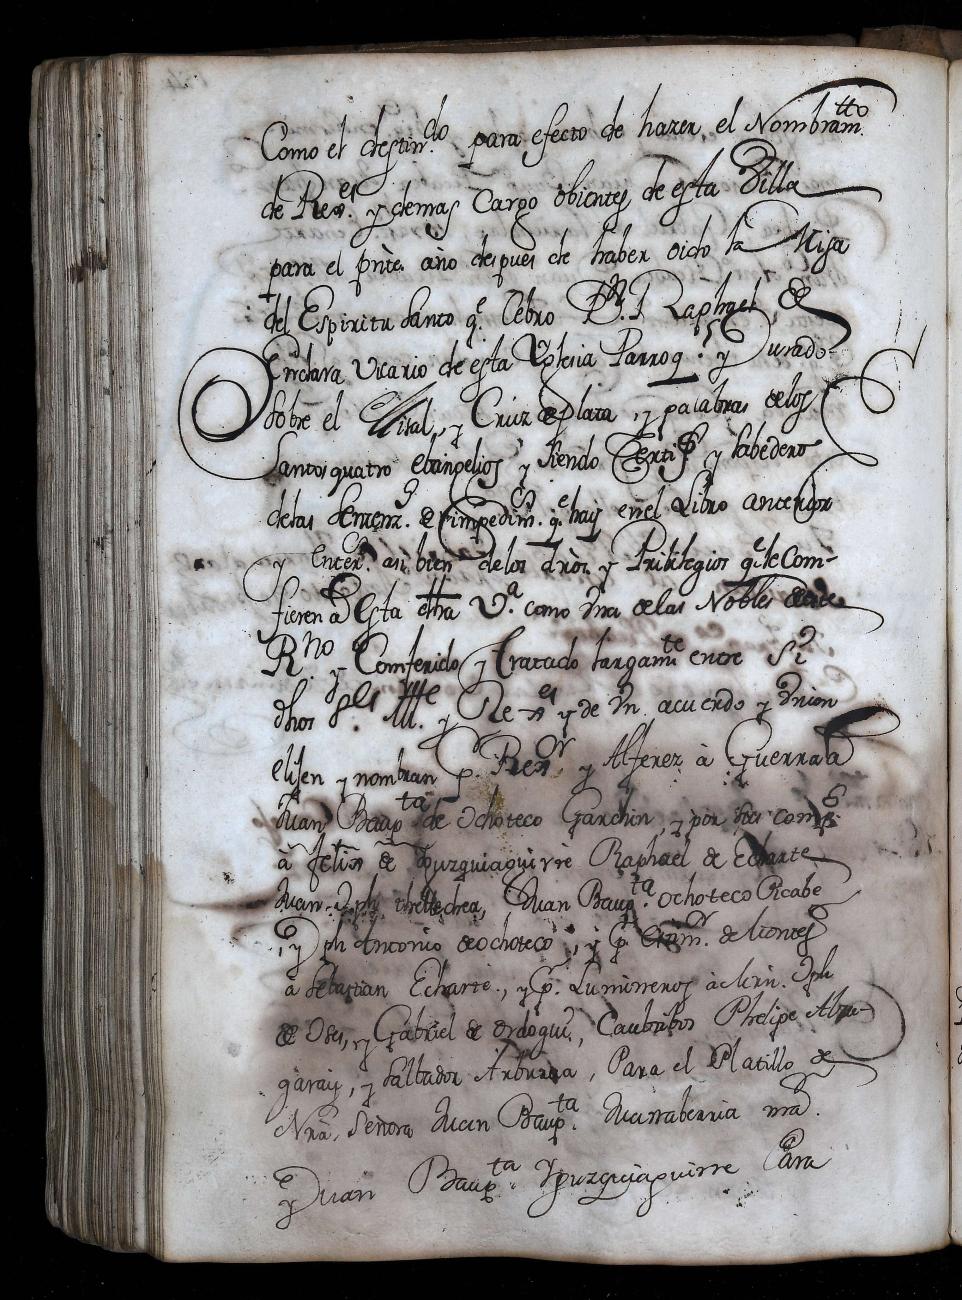 Como el destin.do para efecto de hazer, el Nombram.tto
de Rex.es y demas Cargo obientes, de esta Villa
para el pñte. año despues de haber oido la Misa
del Espiritu Santo q.e Celebro D.n Raphael de
Vicario de esta Yglesia Parroq.l y Jurado
Sobre el Misal, y Cruz de plata, y palabras delos
Santos quatro ebangelios y siendo Zertif.s y Sabedero
delas Sentenz.s e impedim.s q.e hay en el Libro anterior
y asi bien delos drõs y Pribilegios q.e le Com-
fieren a Esta dha V.a como Vna delas Nobles deeste
R.no y Comferido, y tratado largam.te entre Si
dhos S.res Alld.e y Rex.es y de Vn acuerdo y Vnion
elijen y nombran p.r Rex.or y Alferez à Guerra a
Juan Baup.ta de Ochoteco Garchin, y por sus comp.s
à Felix de Yzurguiaguirre Raphael de Echarte
Juan Jph Juan Baup.ta Ochoteco Ricabe
y Jph Antonio deochoteco, y p.r de Montes
à Sebastian Echarte., y p.r Lumineros à Mrn. Jph
de Oses, y Gabriel de Ordogui, Phelipe
garay, y Salbador Para el Platillo de
Nrã. Señora Juan Baup.ta
y Juan Baup.ta Yzurguiaguirre Para